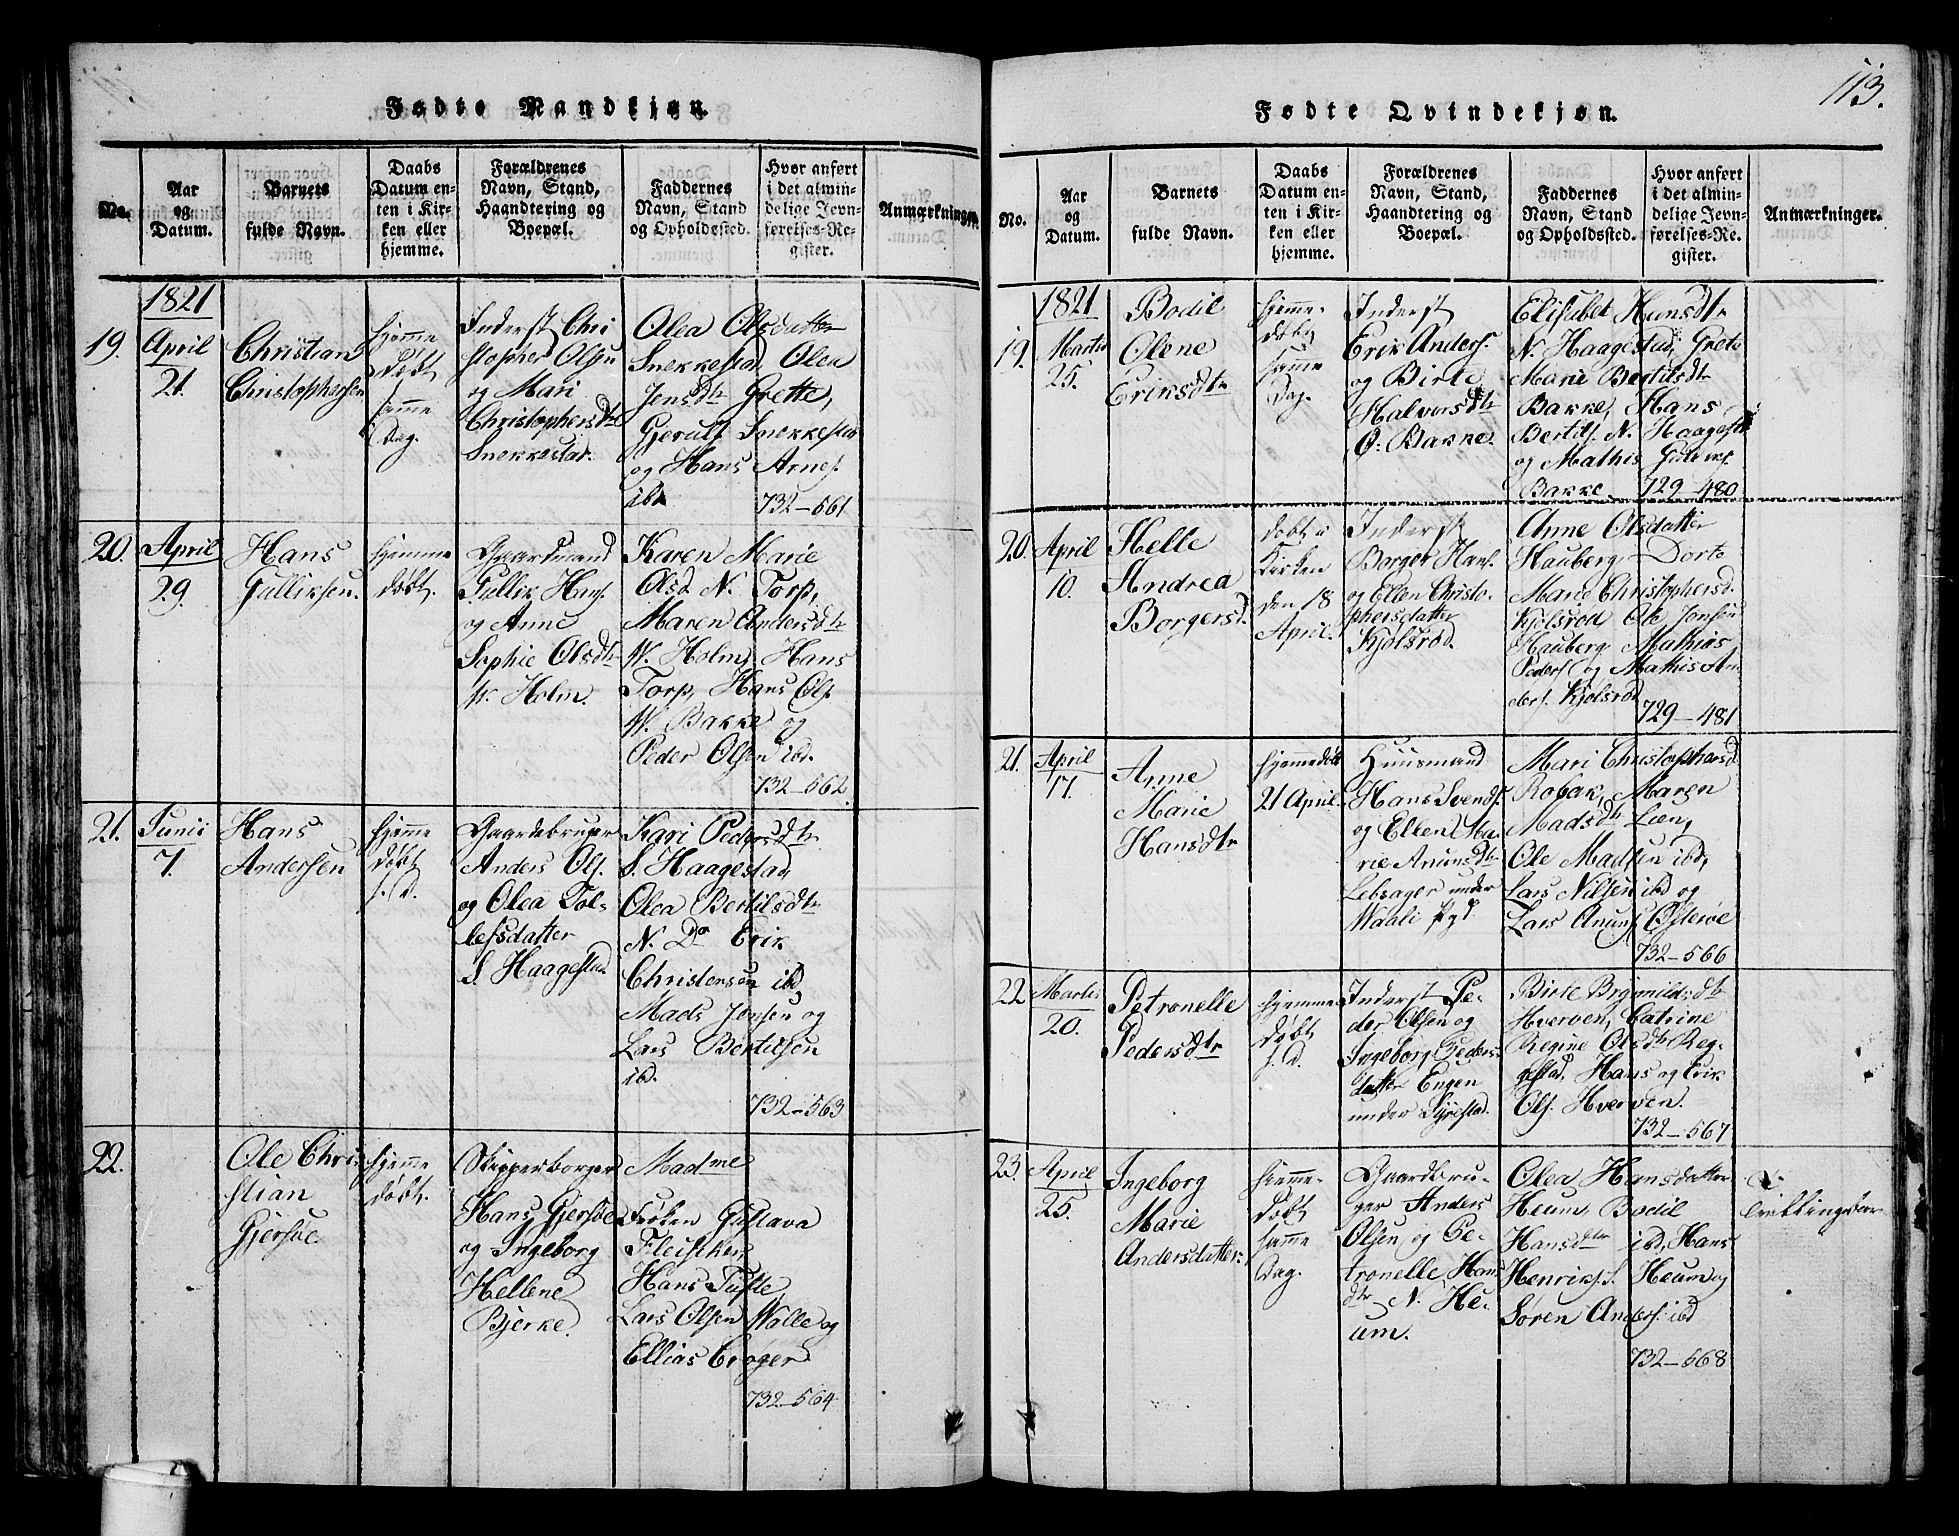 113.
Fødte Mandkjøn.
No.
Aar
og
Datum.
Barnets
fulde Navn.
Daabs
Datum en-
ten i Kir-
ken eller
hjemme.
Forældrenes
Navn, Stand,
Haandtering og
Boepæl.
Faddernes
Navn, Stand
og Opholdssted.
Hvor anført
i det almin-
delige Jevn-
førelses-Re-
gister.
Anmærkninger.
19.
1821
April
21.
Christian
Christophersen
hjemme
døbt
samme
Dag.
Inderst Chri
stopher Olsen
og Mari
Christophersdtr
Snekkestad.
Olea Olsdatter
Snekkestad, Olea
Jensdtr Grette,
Gjerulf Snekkestad
og Hans Arnes.
ibd
732-561
20.
April
29.
Hans
Gulliksen.
hjemme
døbt.
Gaardmand
Gullik Hans.
og Anne
Sophie Olsdtr
W. Holm.
Karen Marie
Olsd. N. Torp,
Maren Andersdtr
W. Holm, Hans
Torp, Hans Ols.
W. Bakke og
Peder Olsen ibd.
732-562.
21.
Junii
7.
Hans
Andersen
hjemme
døbt
s. d.
Gaardebruger
Anders Ols.
og Olea Tol-
lefsdatter
S. Haagestad
Kari Pedersdtr
S. Haagestad,
Olea Bertilsdtr
N. Do Erik
Christensen ibd,
Mads Jensen og
Lars Bertilsen
ibd.
732-563
22.
Ole Chri
stian
Gjersøe
hjemme
døbt.
Skipperborger
Hans Gjersøe
og Ingeborg
Hellene
Bjerke.
Madme
Frøken Gustava
Fleischer,
Hans Tufte,
Lars Olsen Walle og
Ellias Crøger.
732-564
Fødte Qvindekjøn.
No.
Aar
og
Datum.
Barnets
fulde Navn.
Daabs
Datum en-
ten i Kir-
ken eller
hjemme.
Forældrenes
Navn, Stand,
Haandtering og
Boepæl.
Faddernes
Navn, Stand
og Opholdssted.
Hvor anført
i det almin-
delige Jevn-
førelses-Re-
gister.
Antmærkninger.
19.
1821
Martii
25.
Bodil
Olene
Eriksdtr
hjemme-
døbt
samme
Dag.
Inderst
Erik Anders.
og Birte
Halvorsdtr
O. Bakke.
Elisabet Hansdtr
N. Haagestad, Grete
Marie Bertilsdtr
Bakke, Hans
Bertils. N. Haagestad
og Mathis
Bakke.
729-480
20.
April
10.
Helle
Andrea
Borgersd.
døbt i
Kirken
den 18
April.
Inderst
Borger Hans.
og Ellen Christo-
phersdatter
Kjølsrød.
Anne Olsdatter
Hauberg Dorte
Marie Christophersd.
Kjølsrød Ole Jensen
Hauberg Mathias
Peders. og Mathis An
ders. Kjølsrød
729-481
21.
April
17.
Anne
Marie
Hansdtr
hjemmedøbt
21 April.
Huusmand
Hans Svends.
og Ellen Ma-
rie Anunsdtr
Lebsager under
Waali
Mari Christophersd
Robak, Maren
Madsdtr Lien,
Ole Madsen ibd,
Lars Nilsen ibd og
Lars Anuns. Østerøe
732-566
22
Martii
20.
Petronelle
Pedersdtr
hjemme
døbt
s. d.
Inderst Pe-
der Olsen og
Ingeborg Peders-
datter Engen
under Syrestad.
Birte Brynnildsdtr
Hverven, Catrine
Regine Olsdtr Reg-
gestad, Hans og Erik
Ols. Hverven.
732-567
23.
April
25.
Ingeborg
Marie
Andersdatter.
hjemme-
døbt
samme
Dag.
Gaardbru-
ger Anders
Olsen og Pe-
tronelle Hans
dtr N. He-
um.
Olea Hansdatter
Heum, Bodil
Hansdtr ibd, Hans
Henriks. S. Heum og
Søren Anders. ibd
732-568
Tvillingsbarn